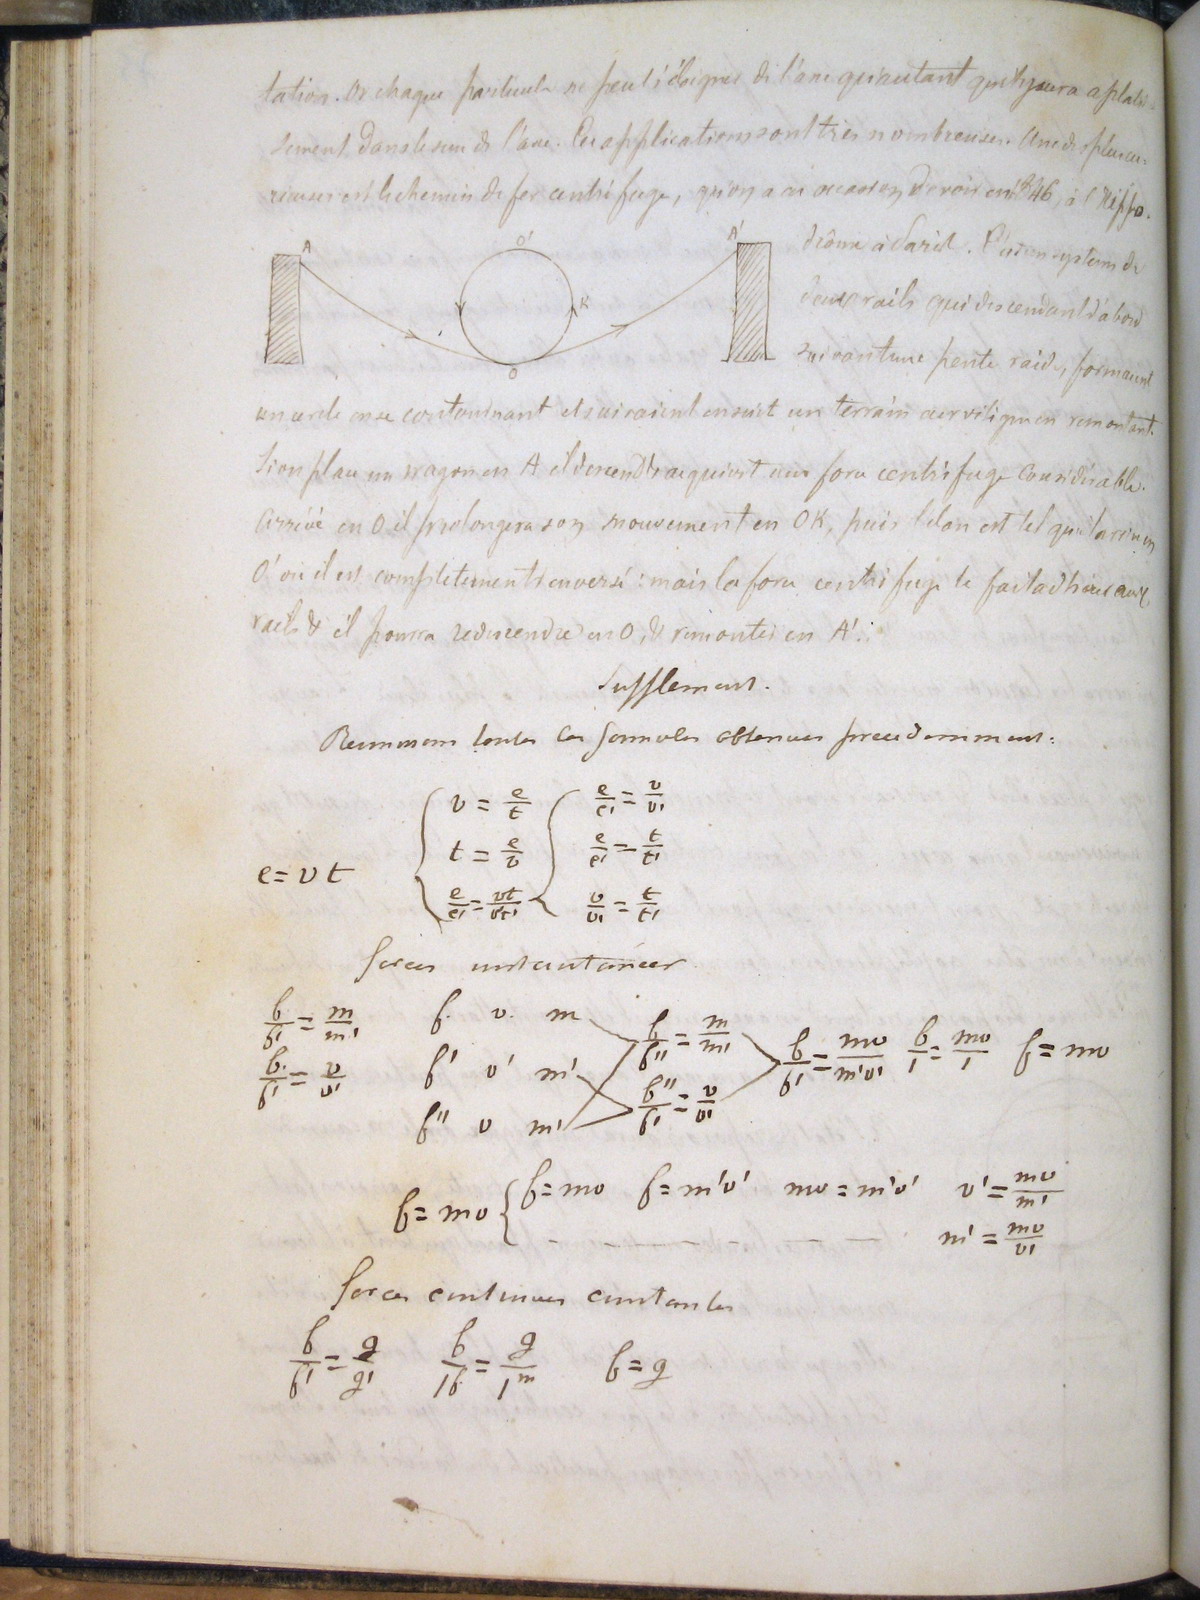 tation. Or chaque particule ne peut s'éloigner de l'axe qu'autant qu'il y aura aplatis-
sement dans le sens de l'axe. Les applications sont très nombreuses. Une des plus cu-
rieuses est le chemin de fer centrifuge, qu'on a eu occasion de voir en 1846, à l'Hippo-
A O' A' drôme à Paris. C'est un système de
K deux rails qui descendant d'abord
O suivant une pente raide, formaient
un cercle en se contournant et suivaient ensuite un terrain curviligne en remontant.
Si on place un wagon en A il descend & acquiert une force centrifuge considérable.
Arrivé en O il prolongera son mouvement en OK, puis l'élan est tel qu'il arrive en
O' où il est complètement renversé : mais la force centrifuge le fait adhérer aux
rails & il pourra redescendre en O, & remonter en A'.
Supplement.
Reunissons toutes les formules obtenues precedemment :
v = e/t e/e' = v/v'
t = e/v e/e' = t/t'
e = vt
e/e' = vt/v't' v/v' = t/t'
forces instantanées
f/f' = m/m' f. v. m f/f'' = m/m'
f/f' = v/v' f' v' m' f''/f' = v/v' f/f' = mv/m'v' f/1 = mv/1 f = mv
f'' v m'
f = mv f = mv f = m'v' mv = m'v' v' = mv/m'
m' = mv/v'
forces continues constantes
f/f' = g/g' f/1f = g/1m f = g